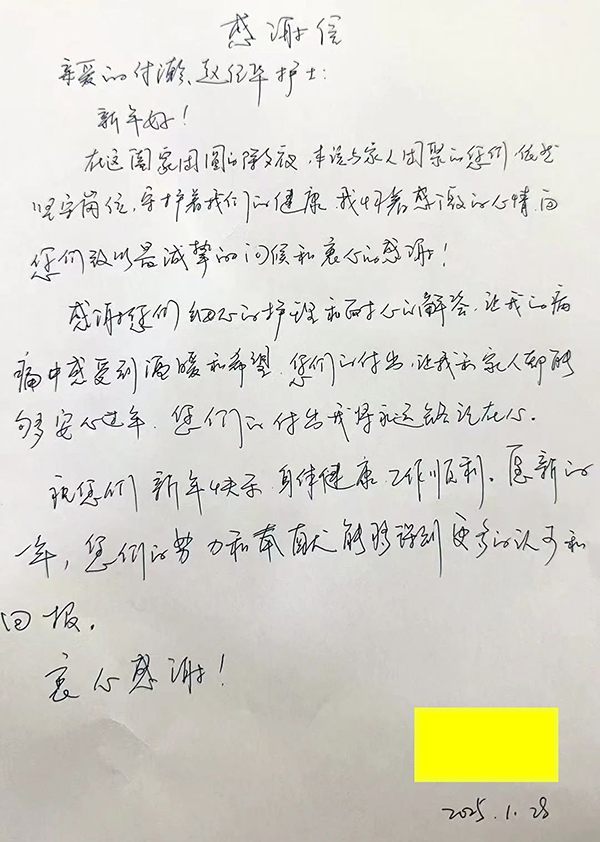 感谢信
亲爱的付瀚、赵任华护士:
新年好!
在这阖家团圆的除夕夜,本该与家人团聚的您们依然
坚守岗位,守护着我们的健康。我怀着感激的心情,向
您们致以最诚挚的问候和衷心的感谢!
感谢您们细心的护理和耐心的解答,让我的病
痛中感受到温暖和希望。您们的付出,让我和家人都能
够安心过年。您们的付出我将永远铭记在心。
祝您们新年快乐,身体健康,工作顺利。愿新的
一年,您们的努力和奉献能够得到更多的认可和
回报。
衷心感谢!
2025.1.28